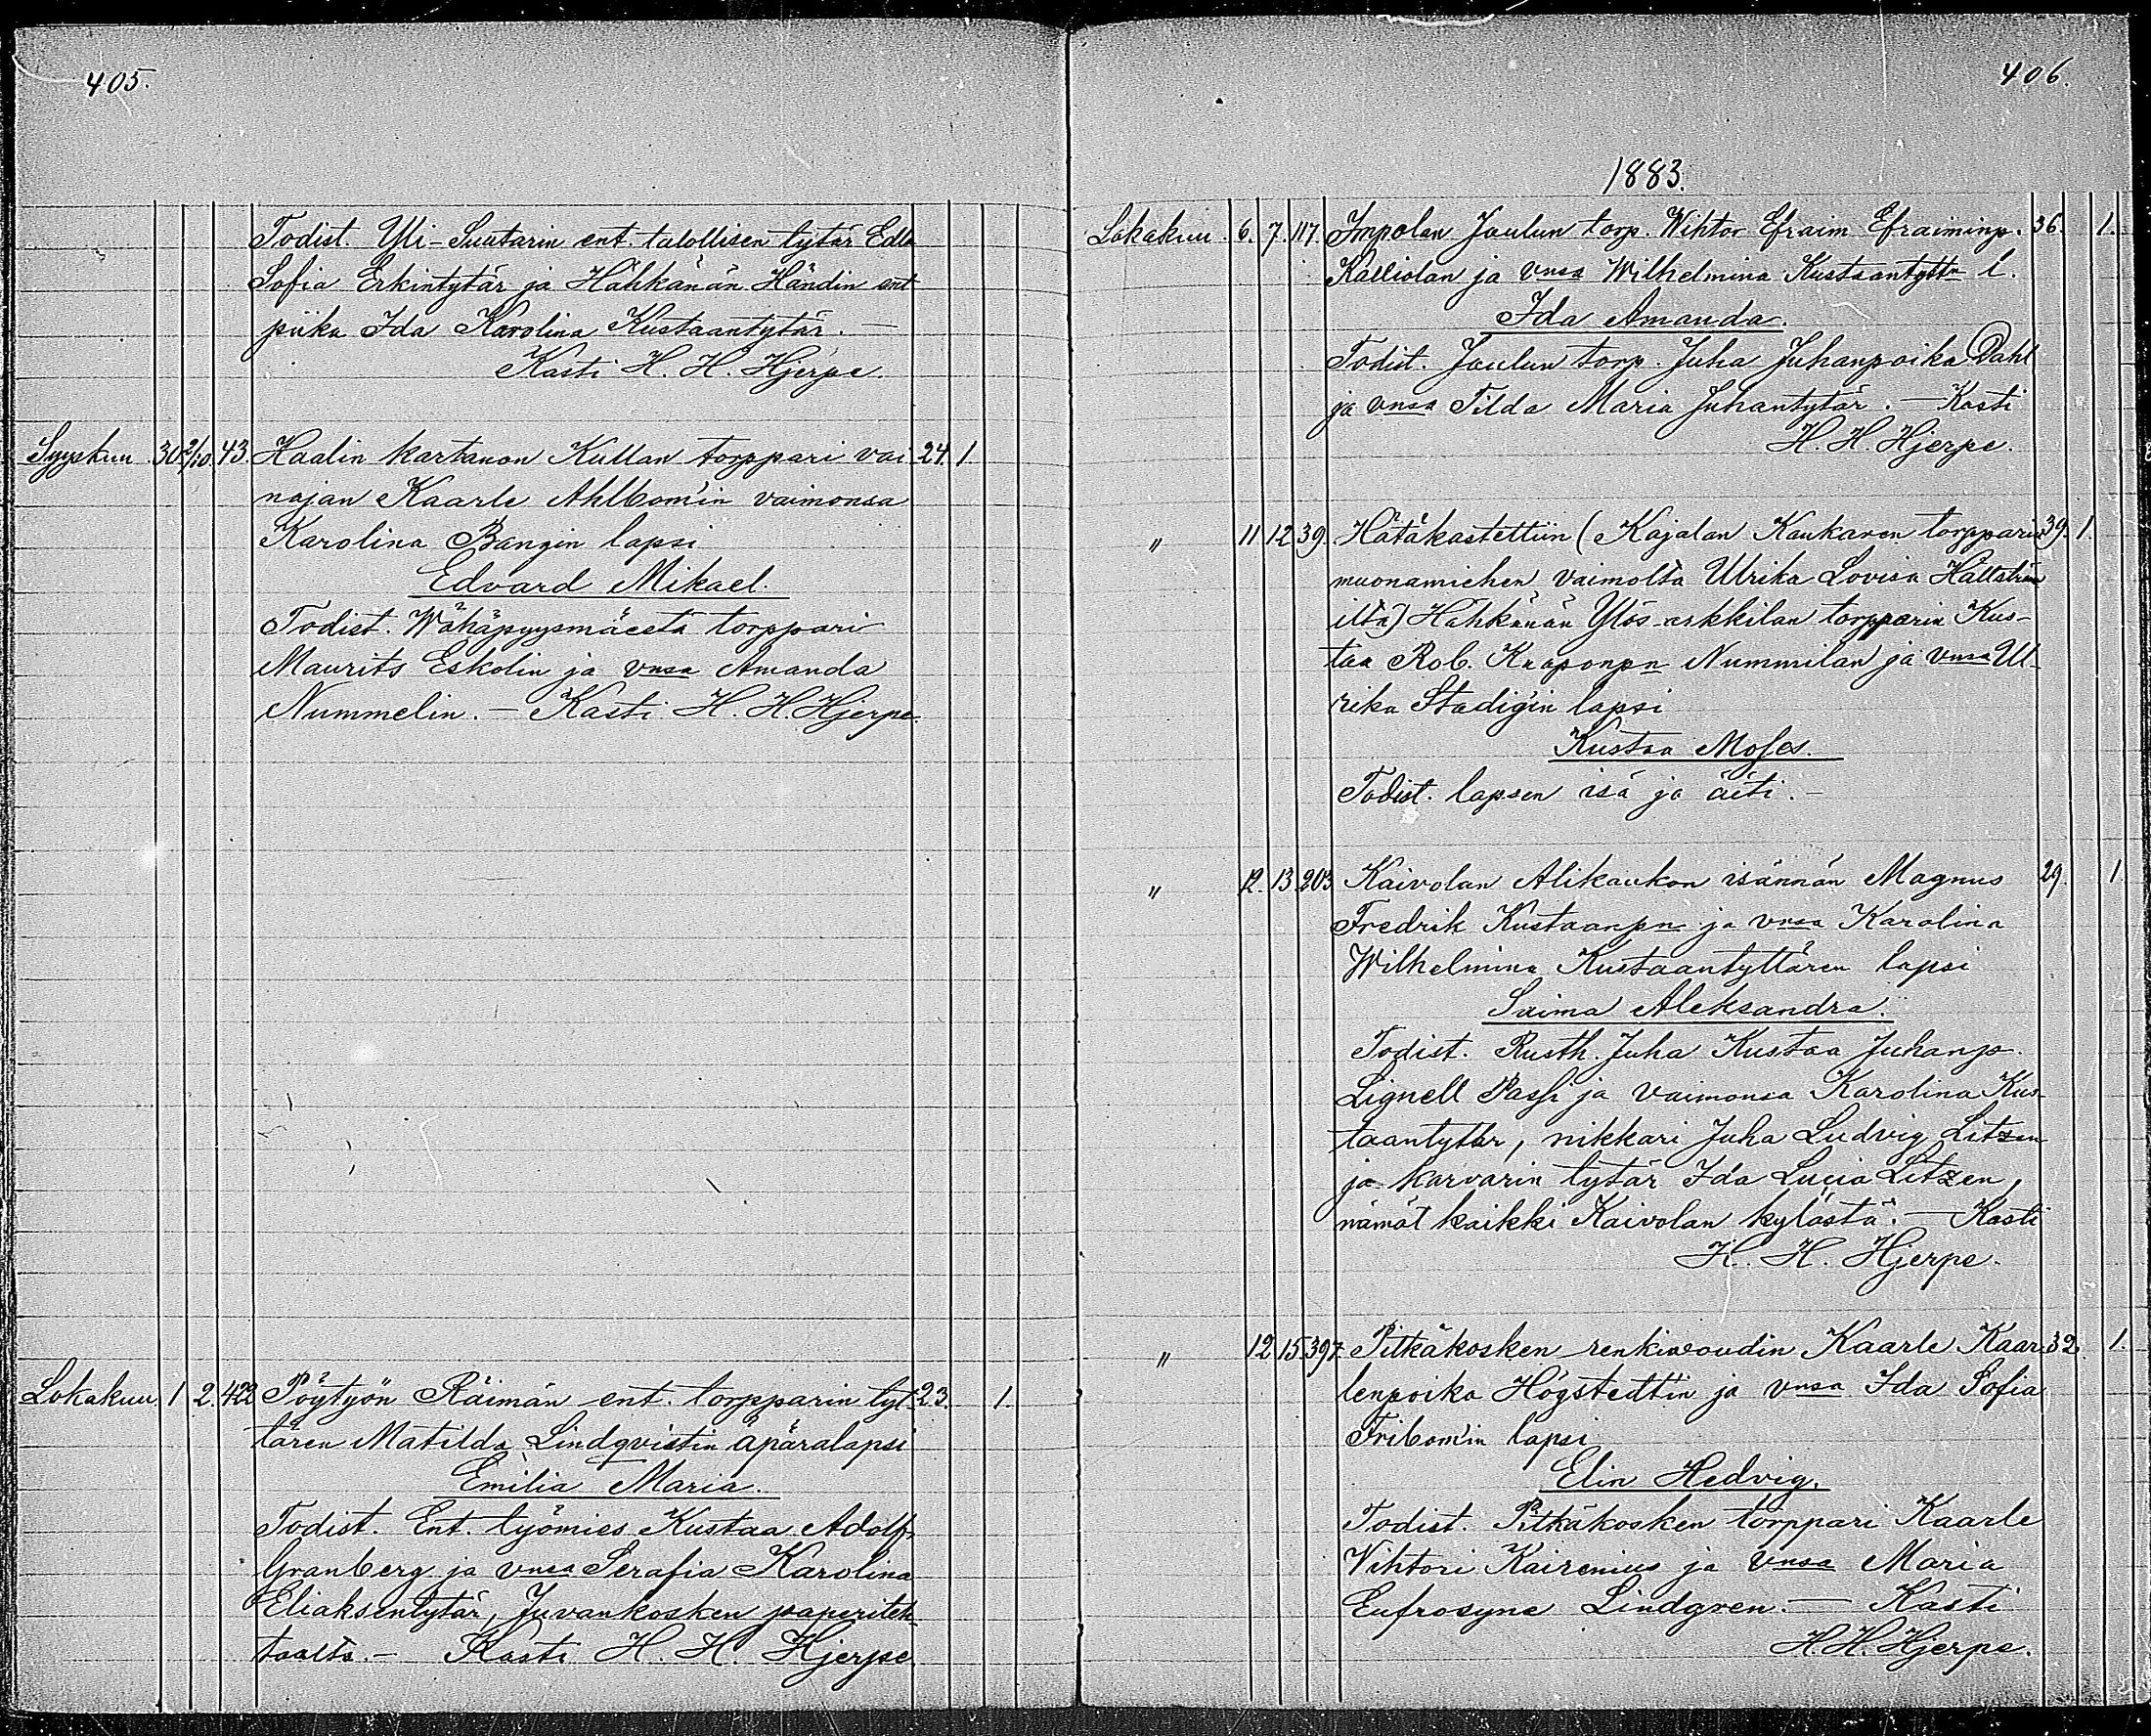 405.
Todist. Yli-Suutarin ent. talollisen tytär Edla
Sofia Erkintytär ja Hähkänän Händin ent
piika Ida Karolina Kustaantytär. —
Kasti H. H. Hjerpe.
Syyskuu 30 2/10. 43. Haalin kartanon Kullan torppari vai 24. 1.
najan Kaarle Ahlbom'in vaimonsa
Karolina Bangin lapsi
Edvard Mikael.
Todist. Wähäpyysmäestä torppari
Maurits Eskolin ja vnsa Amanda
Nummelin. — Kasti H. H. Hjerpe.
Lokakuu 1 2. 422 Pöytyön Räimän ent. torpparin tyt- 23. 1.
tären Matilda Lindqvistin äpäralapsi
Emilia Maria.
Todist. Ent. työmies Kustaa Adolf
Granberg ja vnsa Serafia Karolina
Eliaksentytär, Juvankosken paperiteh-
taalta. — Kasti H. H. Hjerpe.
406.
1883.
Lokakuu 6. 7. 117. Impolan Joulun torp. Wihtor Efraim Efraiminp. 36. 1.
Kalliolan ja vnsa Wilhelmina Kustaantyttn l.
Ida Amanda.
Todist. Joulun torp. Juha Juhanpoika Dahl
ja vnsa Tilda Maria Juhantytär. — Kasti
H. H. Hjerpe.
" 11 12 39. Hätäkastettiin (Kajalan Kaukaren torpparin 39. 1.
muonamiehen vaimolta Ulrika Lovisa Hällström
iltä) Hähkänän Ylös-erkkilan torpparin Kus-
taa Rob. Kaaponpn Nummilan ja vnsa Ul-
rika Stadigin lapsi
Kustaa Moses.
Todist. lapsen isä ja äiti. —
" 12. 13 203 Kaivolan Alikaukon isännän Magnus 29. 1
Fredrik Kustaanpn ja vnsa Karolina
Wilhelmina Kustaantyttären lapsi
Saima Aleksandra.
Todist. Rusth. Juha Kustaa Juhanp.
Lignell Passi ja vaimonsa Karolina Kus-
taantytär, nikkari Juha Ludvig Litzen
ja karvarin tytär Ida Lucia Litzen,
nämät kaikki Kaivolan kylästä. — Kasti
H. H. Hjerpe.
" 12 15. 397. Pitkäkosken renkivoudin Kaarle Kaar- 32. 1.
lenpoika Högstedtin ja vnsa Ida Sofia
Fribom'in lapsi
Elin Hedvig.
Todist. Pitkäkosken torppari Kaarle
Vihtori Kairenius ja vnsa Maria
Eufrosyne Lindgren. — Kasti
H. H. Hjerpe.